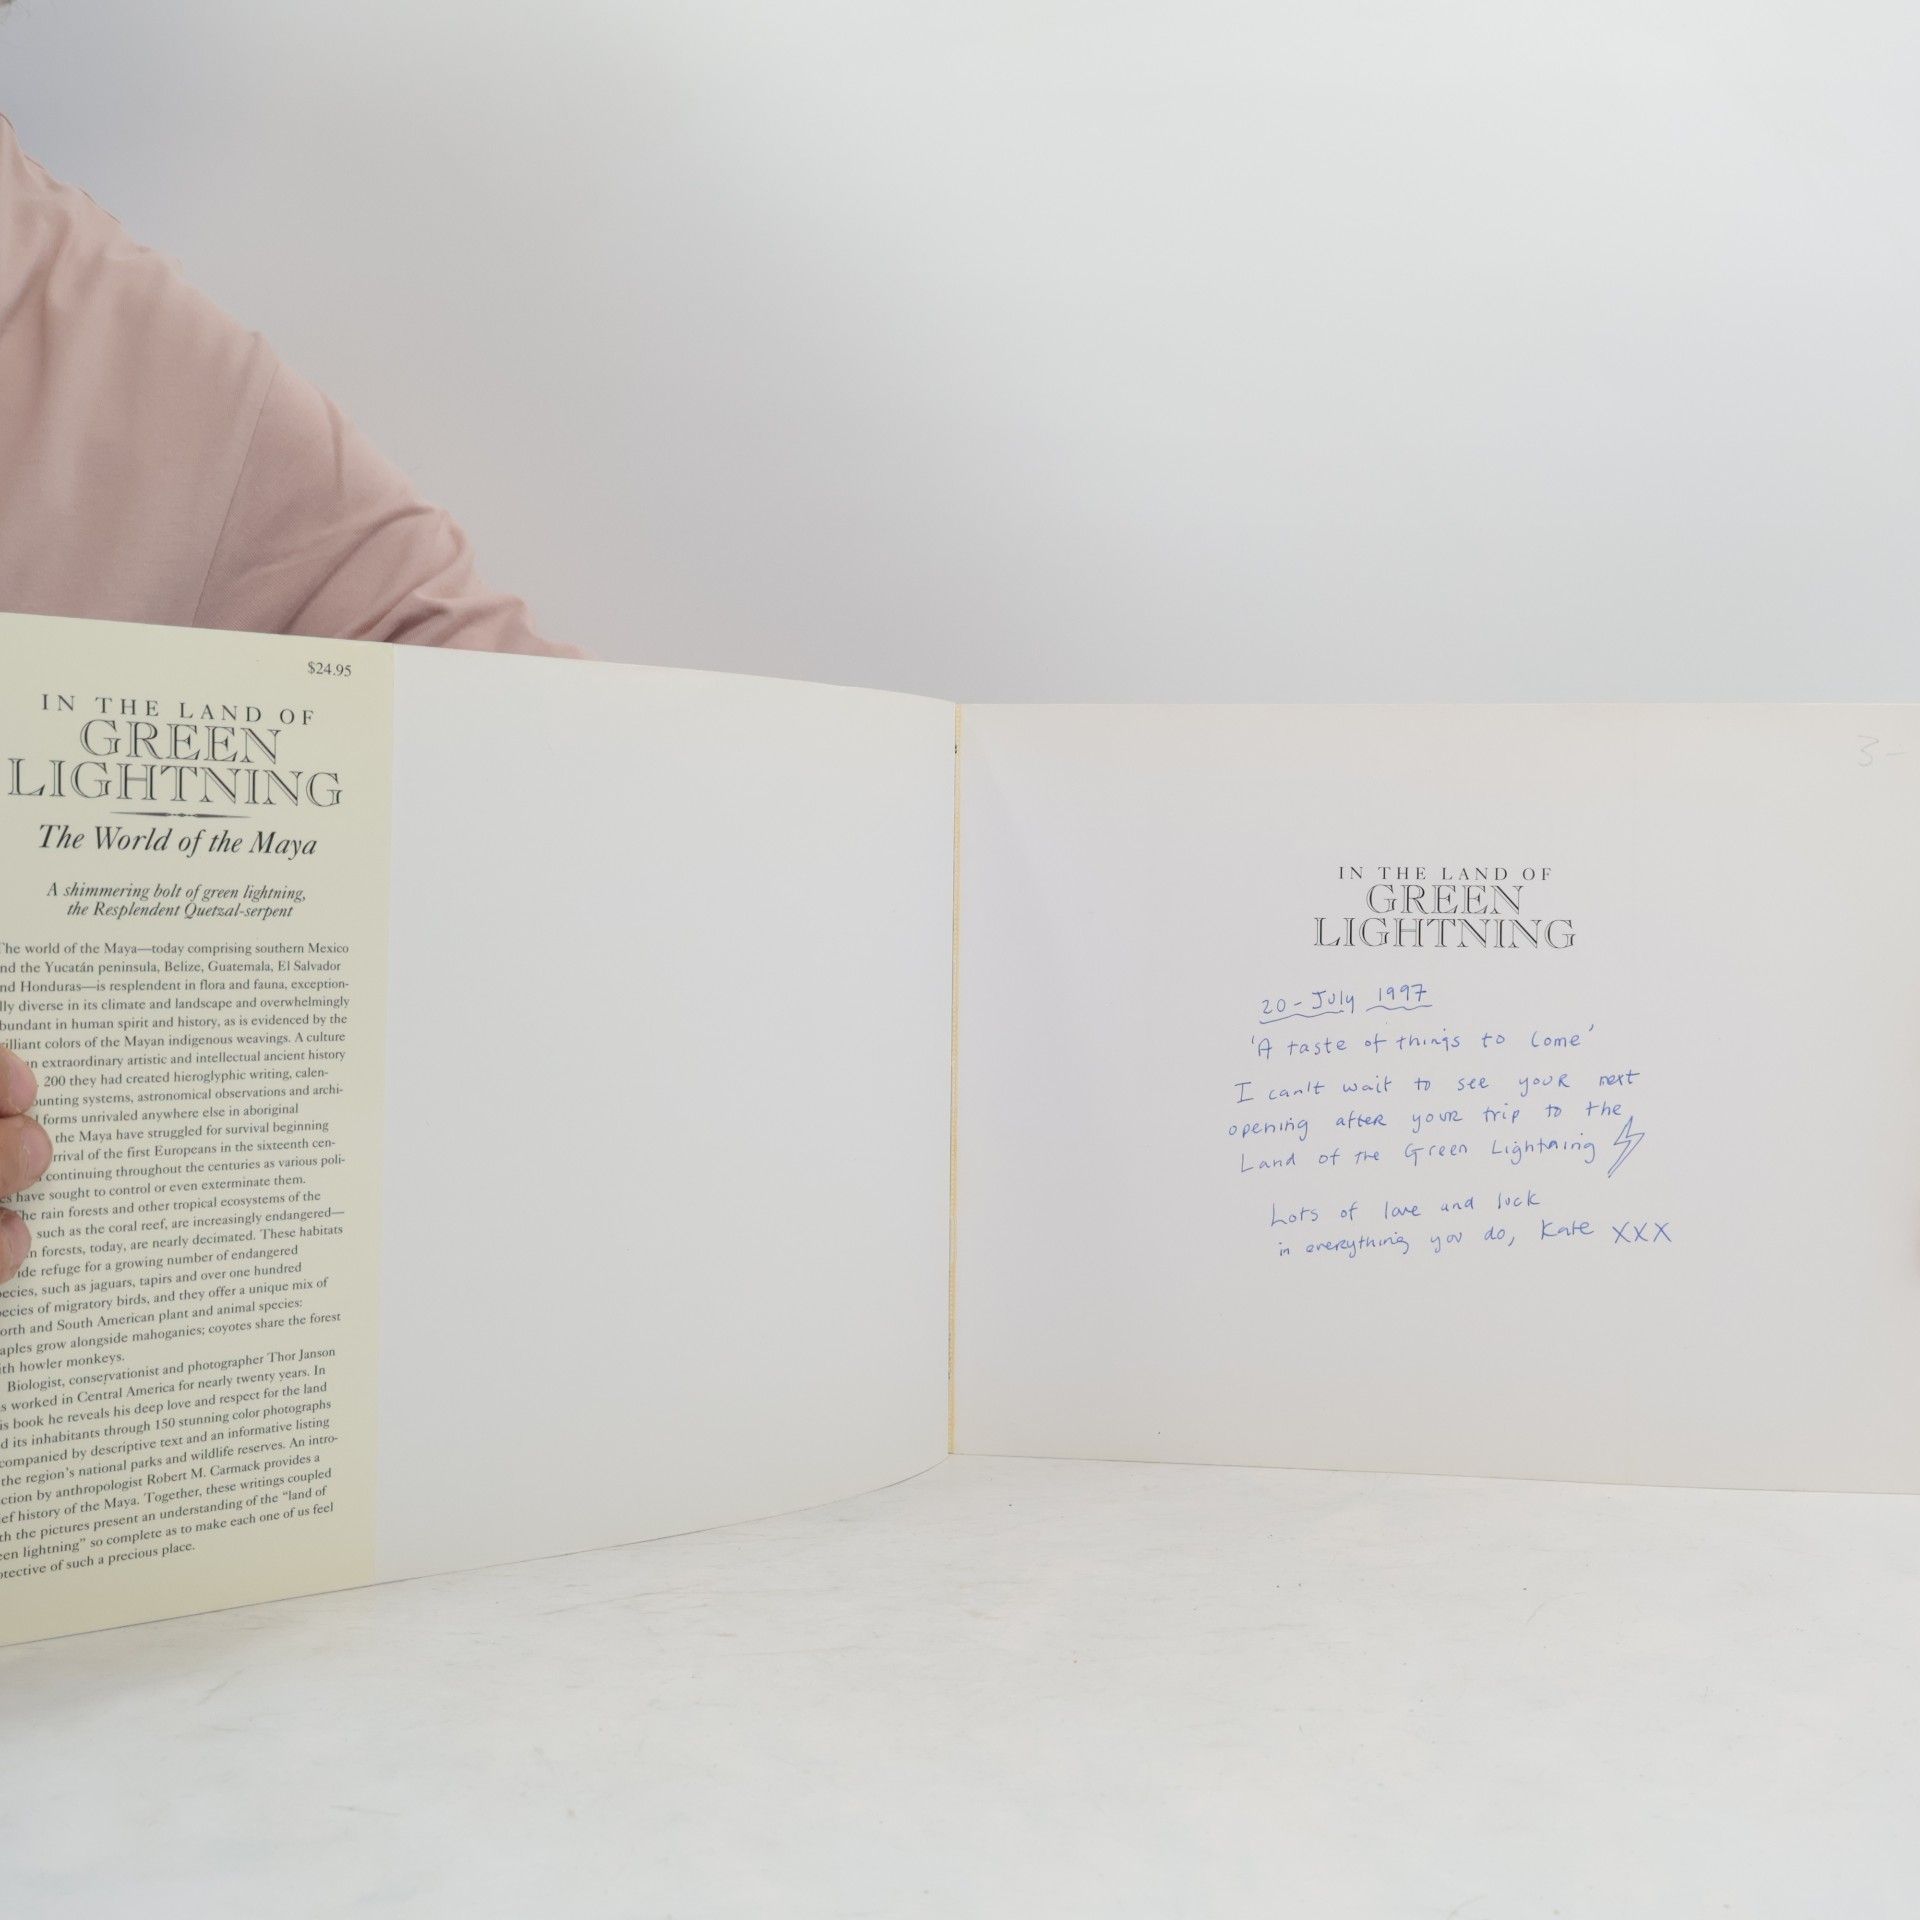 $24.95
IN THE LAND OF
GREEN
LIGHTNING
The World of the Maya
A shimmering bolt of green lightning,
the Resplendent Quetzal-serpent
The world of the Maya—today comprising southern Mexico
nd the Yucatán peninsula, Belize, Guatemala, El Salvador
nd Honduras—is resplendent in flora and fauna, exception-
lly diverse in its climate and landscape and overwhelmingly
bundant in human spirit and history, as is evidenced by the
illiant colors of the Mayan indigenous weavings. A culture
an extraordinary artistic and intellectual ancient history
. 200 they had created hieroglyphic writing, calen-
ounting systems, astronomical observations and archi-
l forms unrivaled anywhere else in aboriginal
the Maya have struggled for survival beginning
rrival of the first Europeans in the sixteenth cen-
continuing throughout the centuries as various poli-
es have sought to control or even exterminate them.
The rain forests and other tropical ecosystems of the
such as the coral reef, are increasingly endangered—
n forests, today, are nearly decimated. These habitats
ide refuge for a growing number of endangered
pecies, such as jaguars, tapirs and over one hundred
pecies of migratory birds, and they offer a unique mix of
orth and South American plant and animal species:
aples grow alongside mahoganies; coyotes share the forest
ith howler monkeys.
Biologist, conservationist and photographer Thor Janson
s worked in Central America for nearly twenty years. In
is book he reveals his deep love and respect for the land
d its inhabitants through 150 stunning color photographs
companied by descriptive text and an informative listing
the region's national parks and wildlife reserves. An intro-
ction by anthropologist Robert M. Carmack provides a
ef history of the Maya. Together, these writings coupled
th the pictures present an understanding of the "land of
een lightning" so complete as to make each one of us feel
otective of such a precious place.
3-
IN THE LAND OF
GREEN
LIGHTNING
20 - July 1997
'A taste of things to come'
I can't wait to see your next
opening after your trip to the
Land of the Green Lightning
Lots of love and luck
in everything you do, Kate XXX